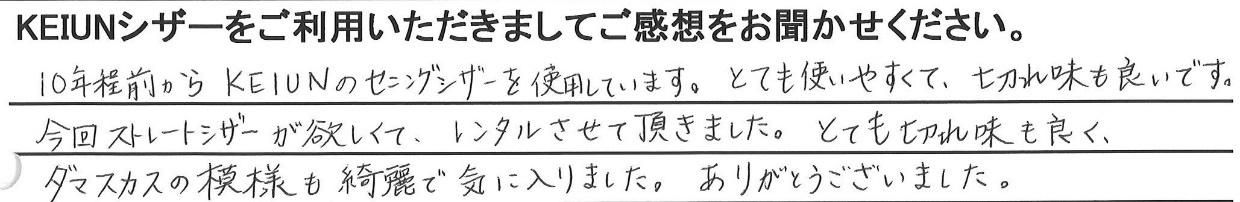 KEIUNシザーをご利用いただきましてご感想をお聞かせください。
10年程前からKEIUNのセニングシザーを使用しています。とても使いやすくて、切れ味も良いです。
今回ストレートシザーが欲しくて、レンタルさせて頂きました。とても切れ味も良く、
ダマスカスの模様も綺麗で気に入りました。ありがとうございました。